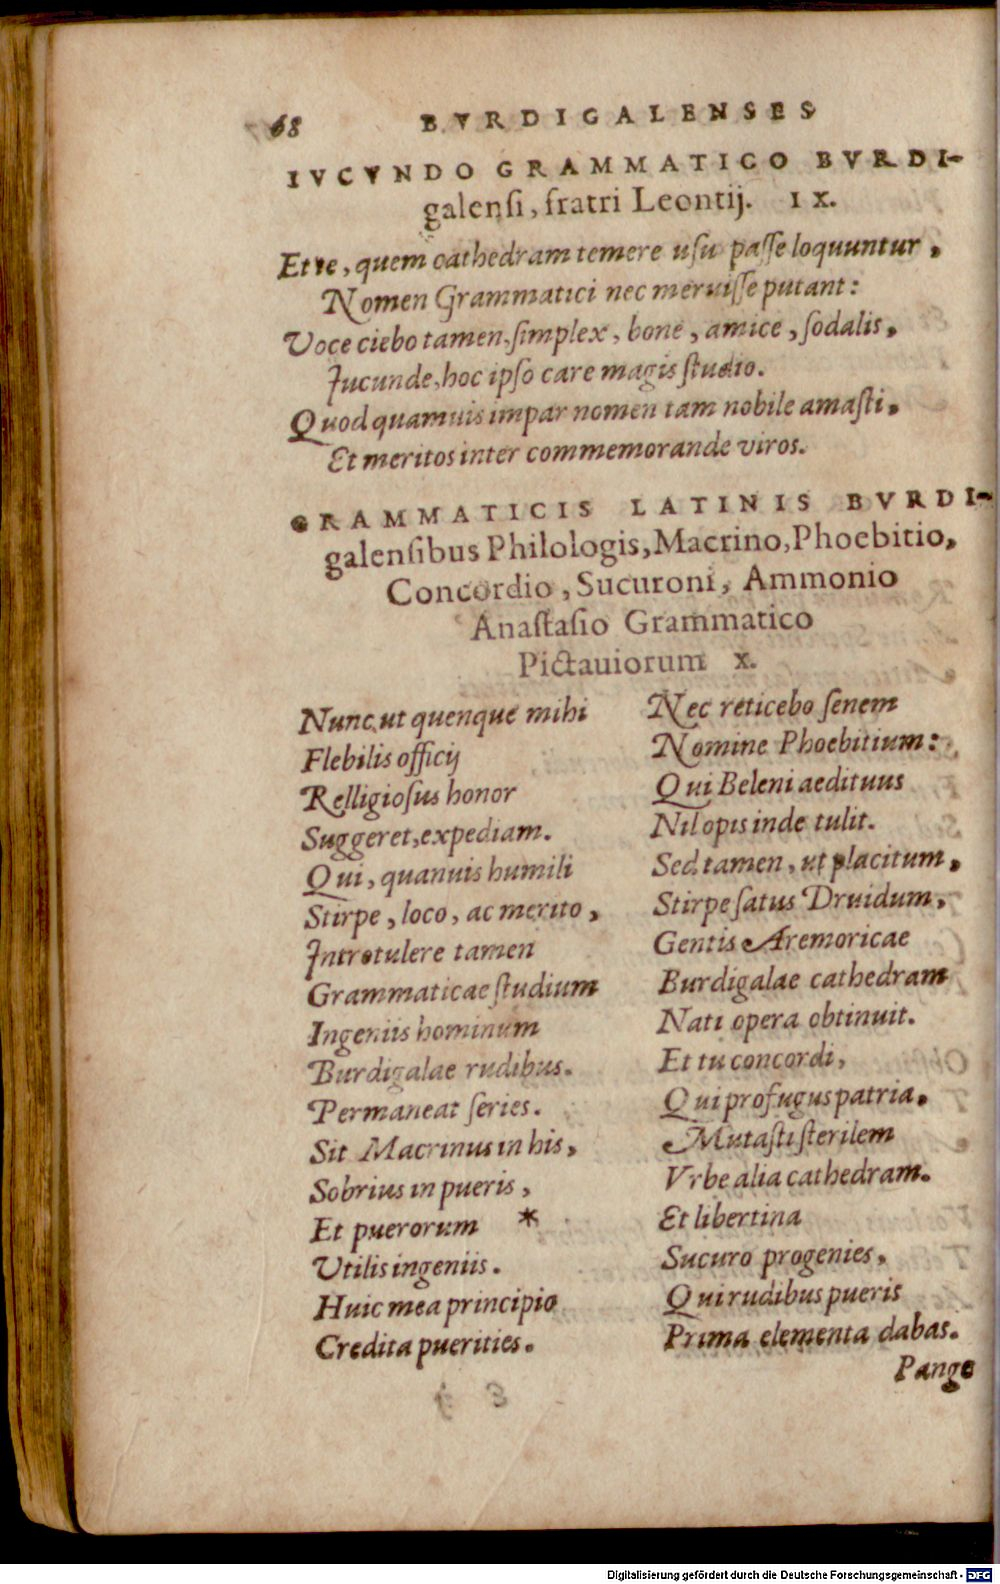 68 BVRDIGALENSES
IVCVNDO GRAMMATICO BVRDI-
galensi, fratri Leontij. IX.
Et te, quem cathedram temere usu passe loquuntur,
Nomen Grammatici nec meruisse putant:
Voce ciebo tamen, simplex, bone, amice, sodalis,
Jucunde, hoc ipso care magis studio.
Quod quamuis impar nomen tam nobile amasti,
Et meritos inter commemorande viros.
GRAMMATICIS LATINIS BVRDI-
galensibus Philologis, Macrino, Phoebitio,
Concordio, Sucuroni, Ammonio
Anastasio Grammatico
Pictauiorum X.
Nunc, ut quenque mihi
Flebilis officij
Relligiosus honor
Suggeret, expediam.
Qui, quanuis humili
Stirpe, loco, ac merito,
Introtulere tamen
Grammaticae studium
Ingeniis hominum
Burdigalae rudibus.
Permaneat series.
Sit Macrinus in his,
Sobrius in pueris,
Et puerorum *
Utilis ingeniis.
Huic mea principio
Credita puerities.
Nec reticebo senem
Nomine Phoebitium:
Qui Beleni aedituus
Nil opis inde tulit.
Sed tamen, ut placitum,
Stirpe satus Druidum,
Gentis Aremoricae
Burdigalae cathedram
Nati opera obtinuit.
Et tu concordi,
Qui profugus patria,
Mutasti sterilem
Vrbe alia cathedram.
Et libertina
Sucuro progenies,
Qui rudibus pueris
Prima elementa dabas.
Pange
Digitalisierung gefördert durch die Deutsche Forschungsgemeinschaft - DFG